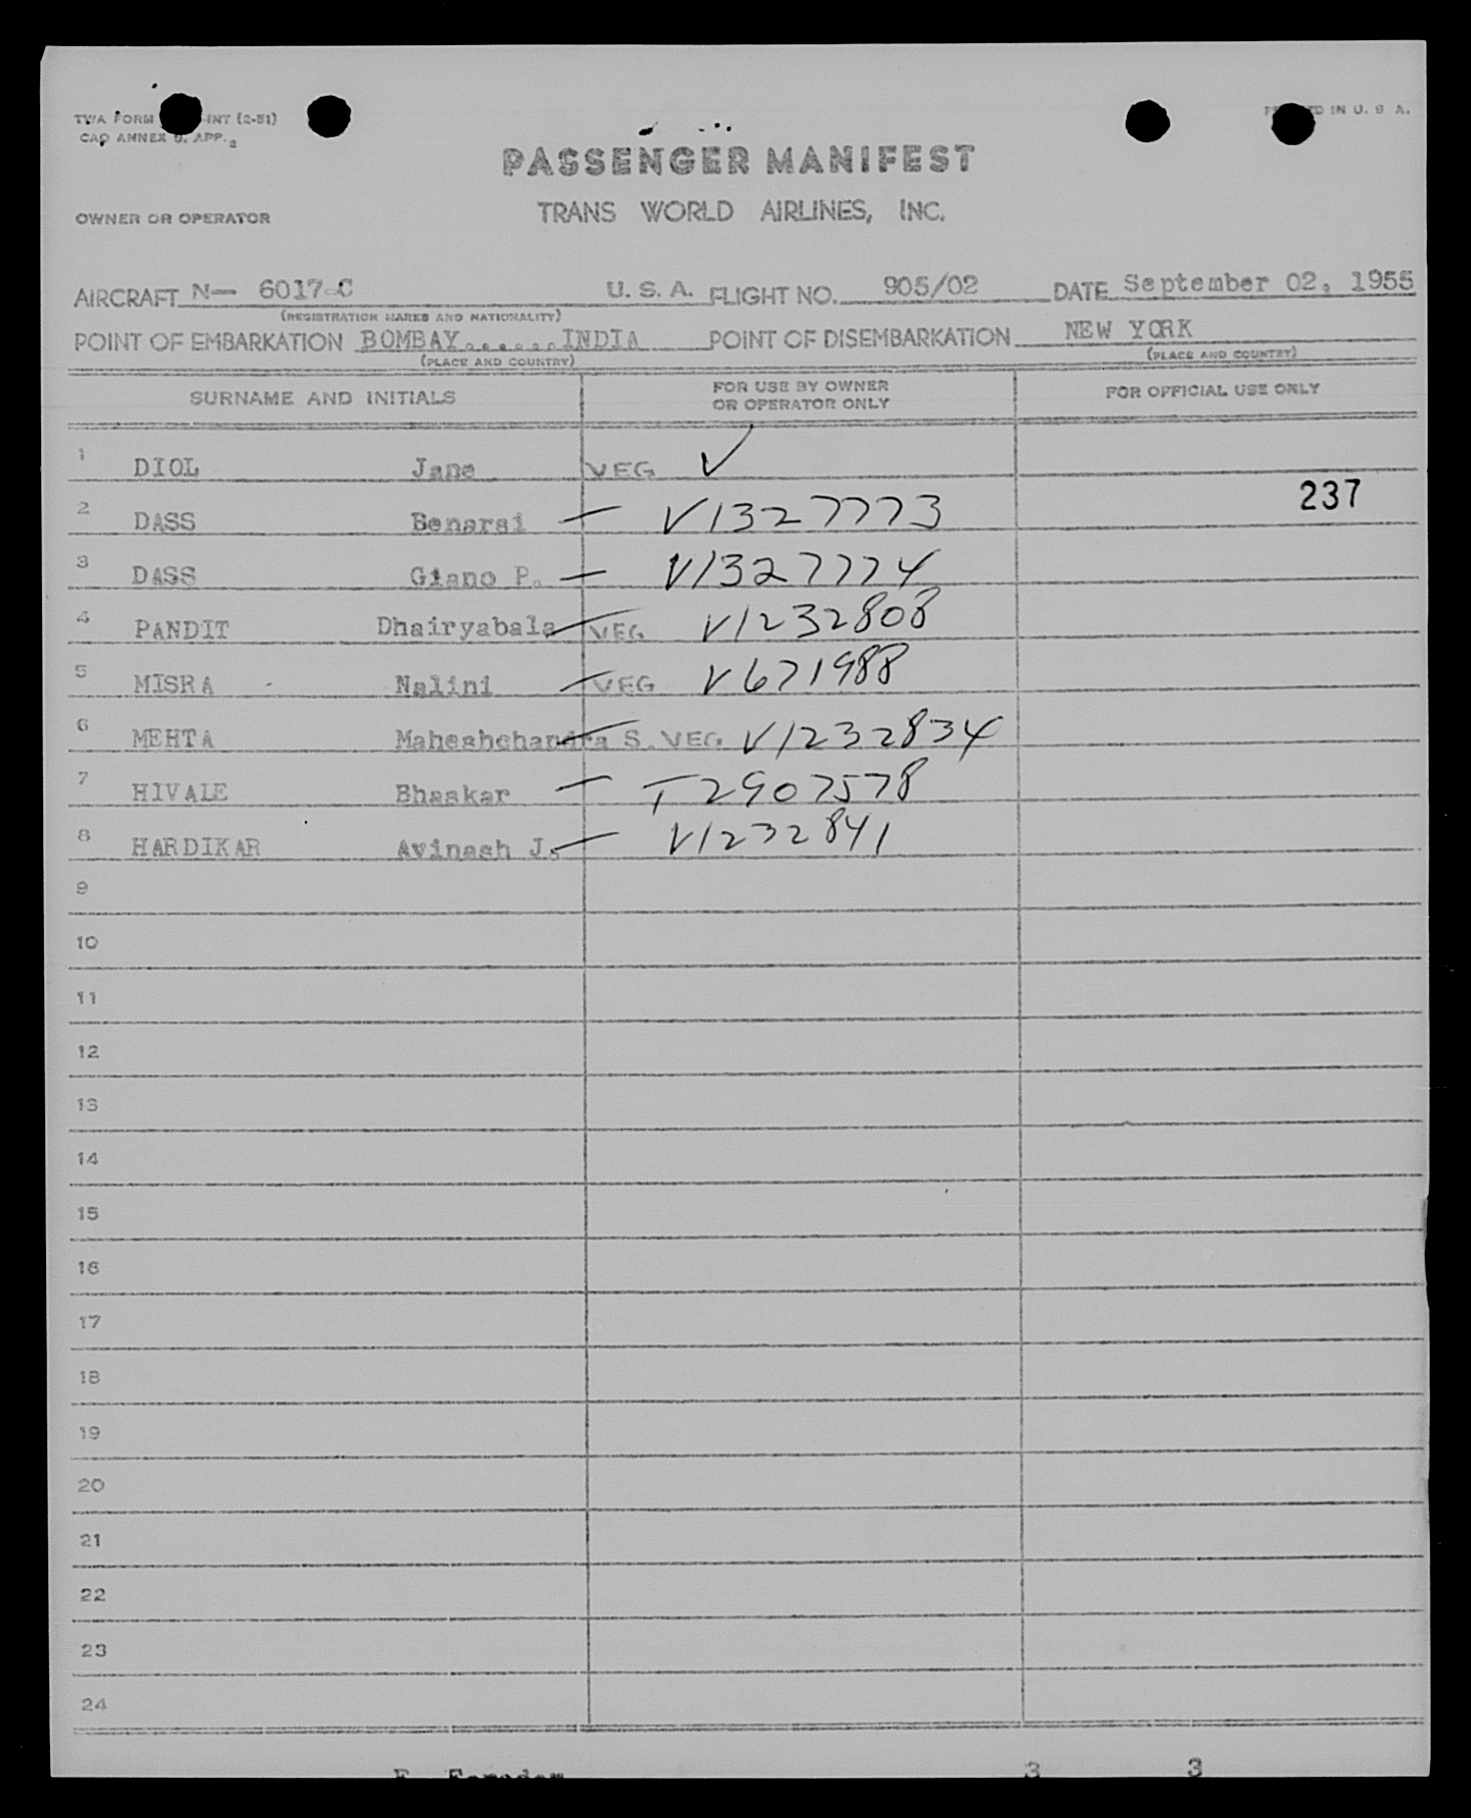 TWA FORM INT (2-51)
CAO ANNEX 9, APP. 2
IN U. S. A.
PASSENGER MANIFEST
OWNER OR OPERATOR TRANS WORLD AIRLINES, INC.
AIRCRAFT N— 6017-C U. S. A. FLIGHT NO. 905/02 DATE September 02, 1955
(REGISTRATION MARKS AND NATIONALITY)
POINT OF EMBARKATION BOMBAY......INDIA POINT OF DISEMBARKATION NEW YORK
(PLACE AND COUNTRY) (PLACE AND COUNTRY)
SURNAME AND INITIALS FOR USE BY OWNER OR OPERATOR ONLY FOR OFFICIAL USE ONLY
1 DIOL Jane VEG ✓
2 DASS Benarsi — V1327773 237
3 DASS Giano P. — V1327774
4 PANDIT Dhairyabala — VEG V1232808
5 MISRA - Nalini — VEG V671988
6 MEHTA Maheshchandra S. VEG V1232834
7 HIVALE Bhaskar — T2907578
8 HARDIKAR Avinash J. — V1232841
9
10
11
12
13
14
15
16
17
18
19
20
21
22
23
24
3 3